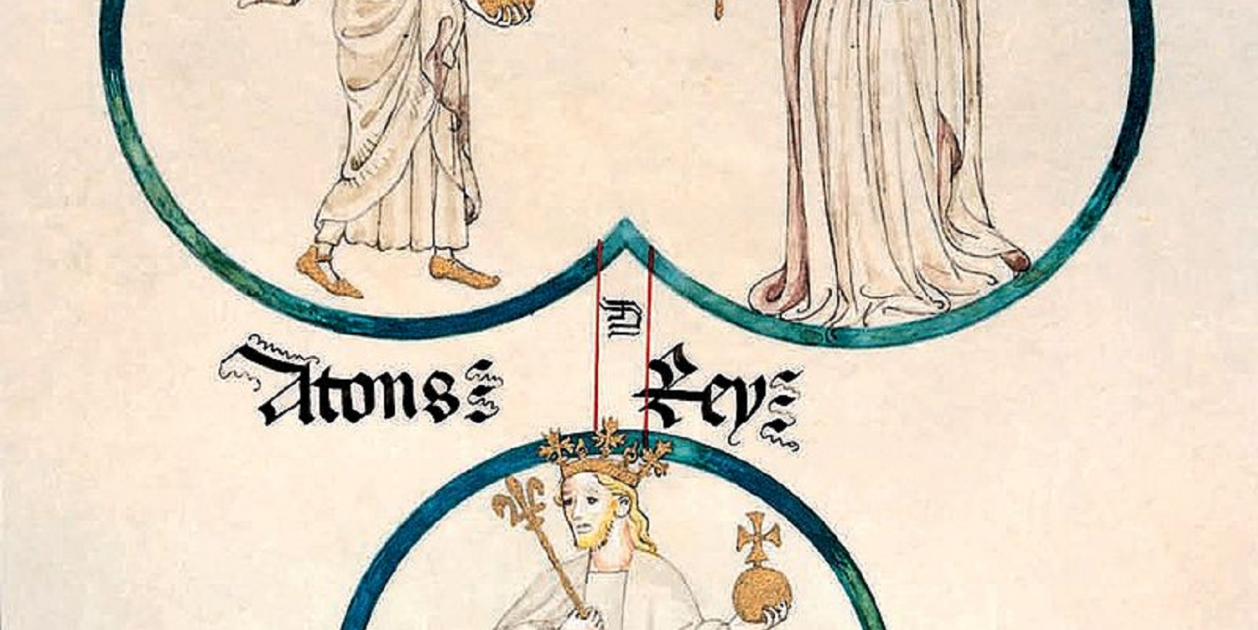 Atons Rey